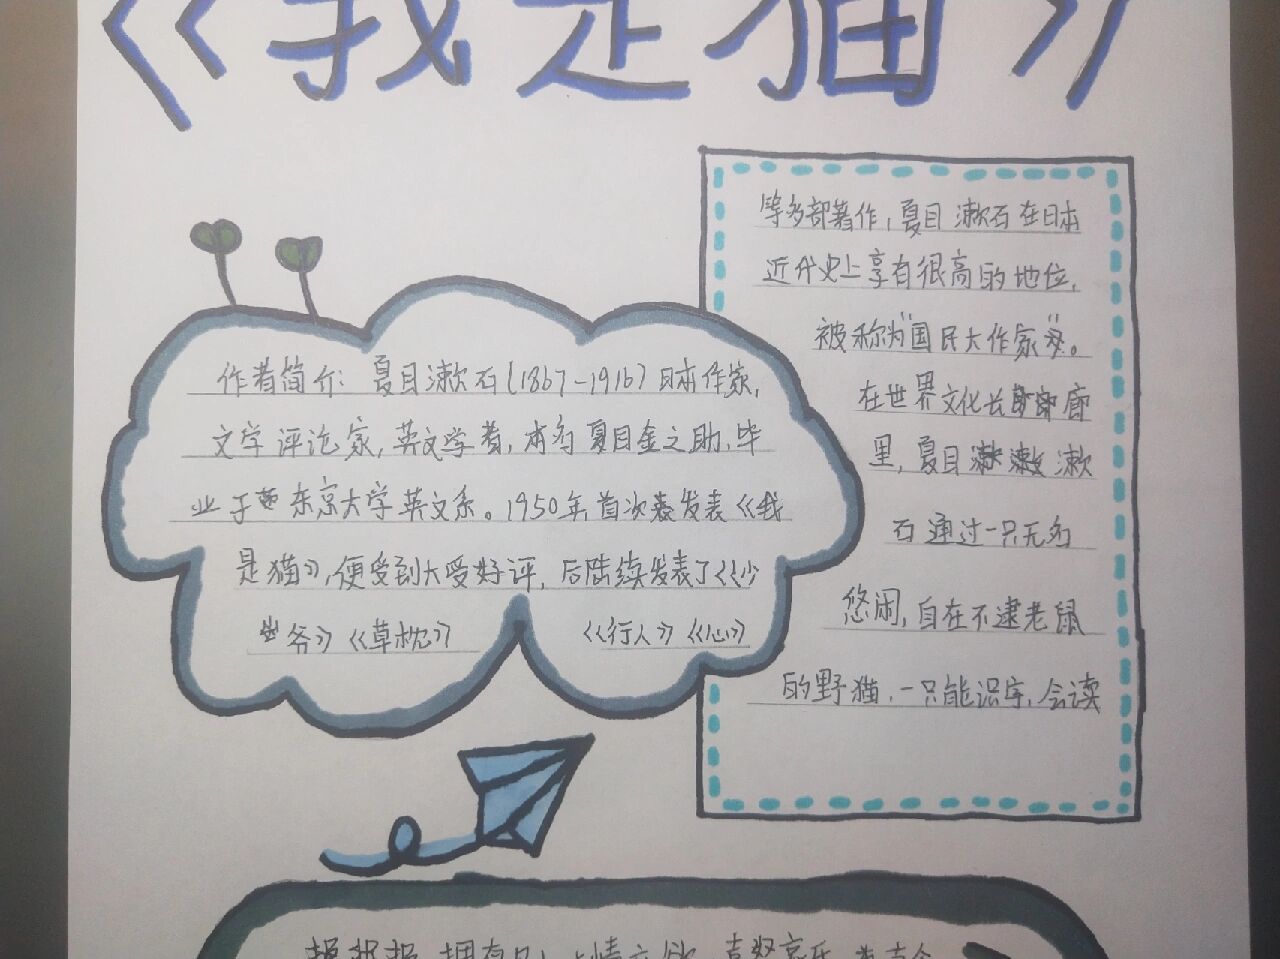 《我是猫》
作者简介：夏目漱石(1867-1916)日本作家，
文学评论家，英文学者，本名夏目金之助，毕
业于东京大学英文系。1950年首次发表《我
是猫》，便受到大受好评，后陆续发表了《少
爷》《草枕》《行人》《心》
等多部著作，夏目漱石在日本
近代史上享有很高的地位，
被称为"国民大作家"。
在世界文化长廊
里，夏目漱
石通过一只无名
悠闲，自在不逮老鼠
的野猫，一只能识字，会读